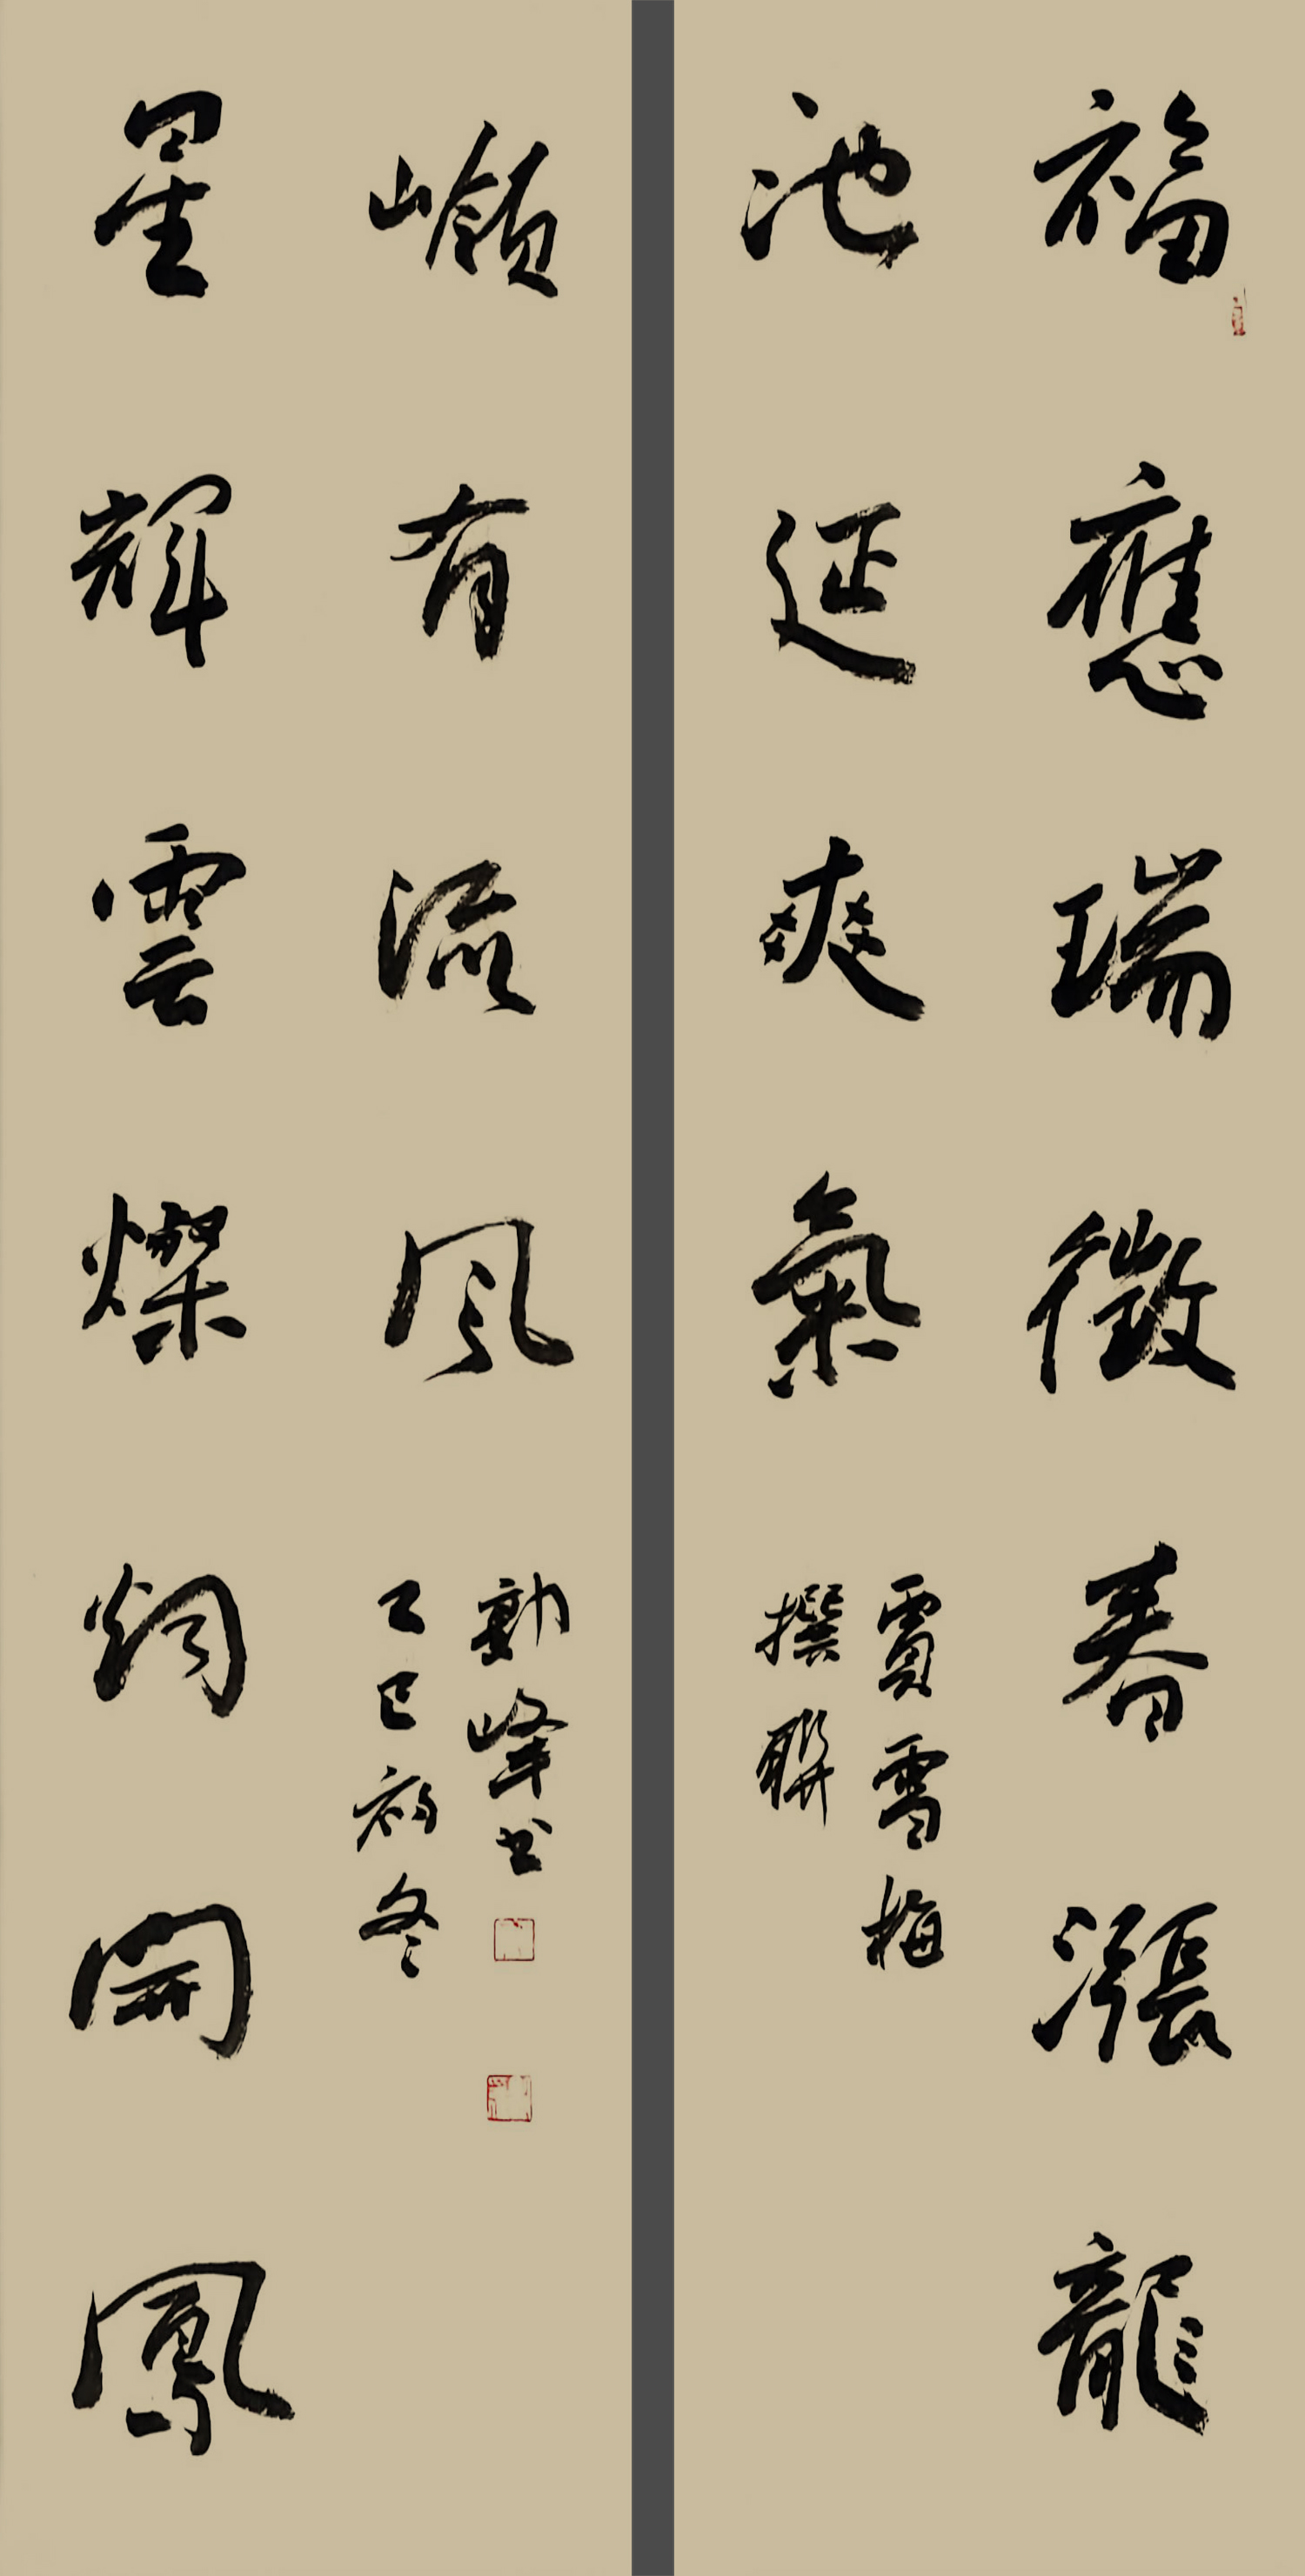 福應瑞徵春漲龍
池延爽氣
賈雪梅
撰聯
星輝雲燦炯開鳳
嶺有流風
勳峰书
乙巳初冬